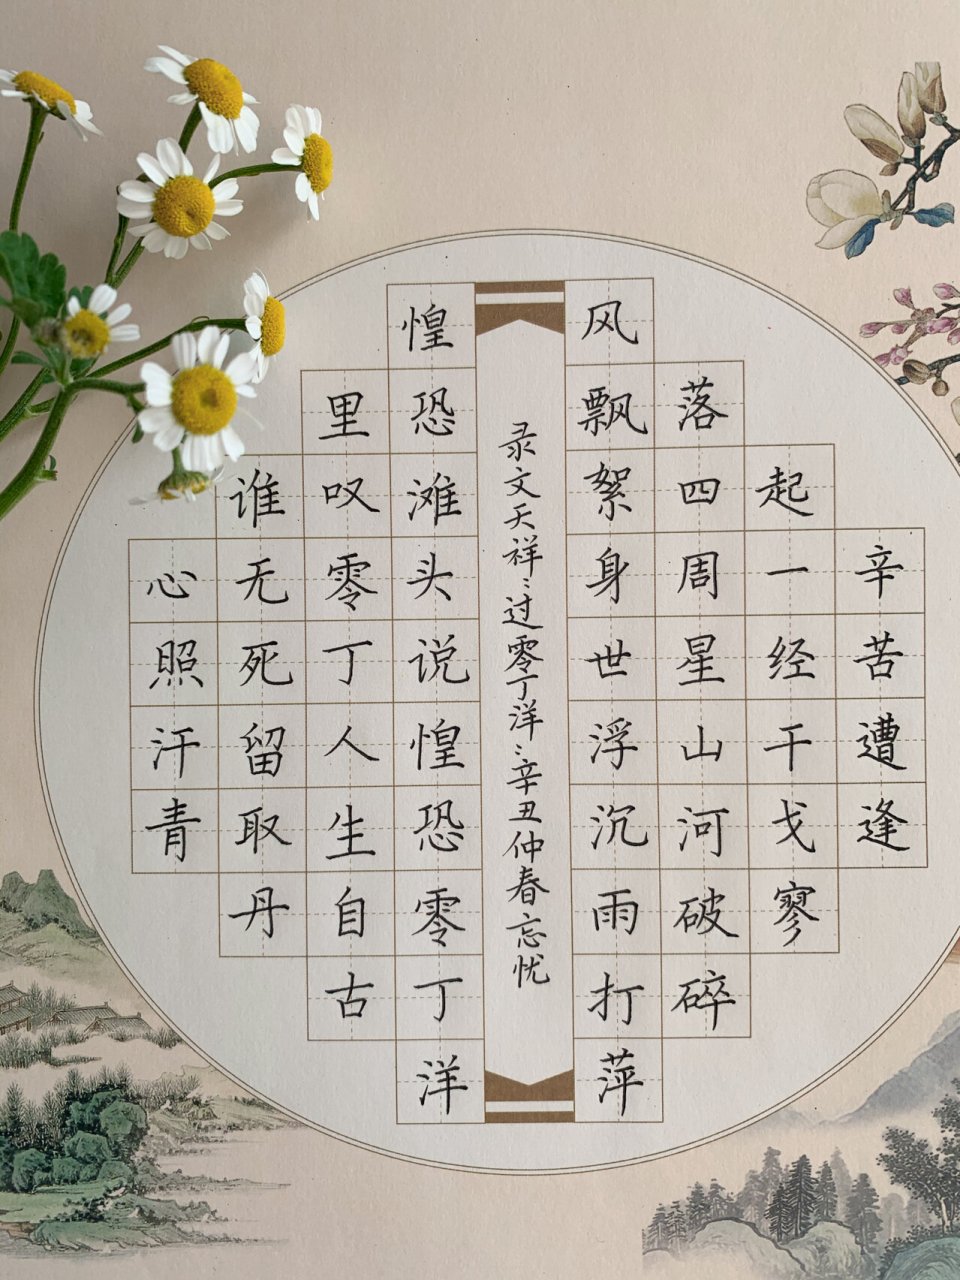 辛苦遭逢
起一经干戈寥
落四周星山河破碎
风飘絮身世浮沉雨打萍
录文天祥：过零丁洋：辛丑仲春忘忧
惶恐滩头说惶恐零丁洋
里叹零丁人生自古
谁无死留取丹
心照汗青